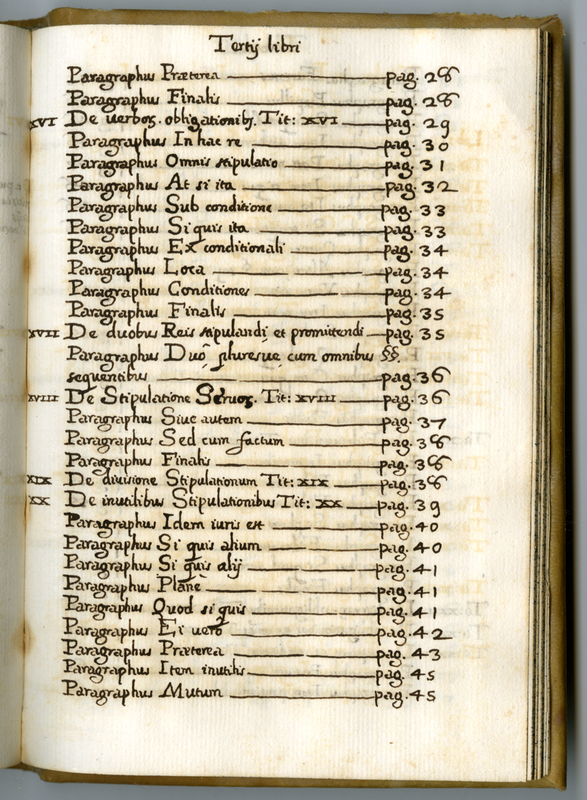 Tertij libri
Paragraphus Præterea pag. 28
Paragraphus Finalis pag. 28
XVI De verboꝝ. obligationibꝫ. Tit: XVI pag. 29
Paragraphus In hac re pag. 30
Paragraphus Omnis stipulatio pag. 31
Paragraphus At si ita pag. 32
Paragraphus Sub conditione pag. 33
Paragraphus Si quis ita pag. 33
Paragraphus Ex conditionali pag. 34
Paragraphus Loca pag. 34
Paragraphus Conditiones pag. 34
Paragraphus Finalis pag. 35
XVII De duobus Reis stipulandi et promittendi pag. 35
Paragraphus Duo pluresue cum omnibus §§.
sequentibus pag. 36
XVIII De Stipulatione Seruoꝝ. Tit: XVIII pag. 36
Paragraphus Siue autem pag. 37
Paragraphus Sed cum factum pag. 38
Paragraphus Finalis pag. 38
XIX De divisione Stipulationum Tit: XIX pag. 38
XX De inutilibus Stipulationibus Tit: XX pag. 39
Paragraphus Idem iuris est pag. 40
Paragraphus Si quis alium pag. 40
Paragraphus Si quis alij pag. 41
Paragraphus Planè pag. 41
Paragraphus Quod si quis pag. 41
Paragraphus Ei vero pag. 42
Paragraphus Præterea pag. 43
Paragraphus Item inutilis pag. 45
Paragraphus Mutum pag. 45